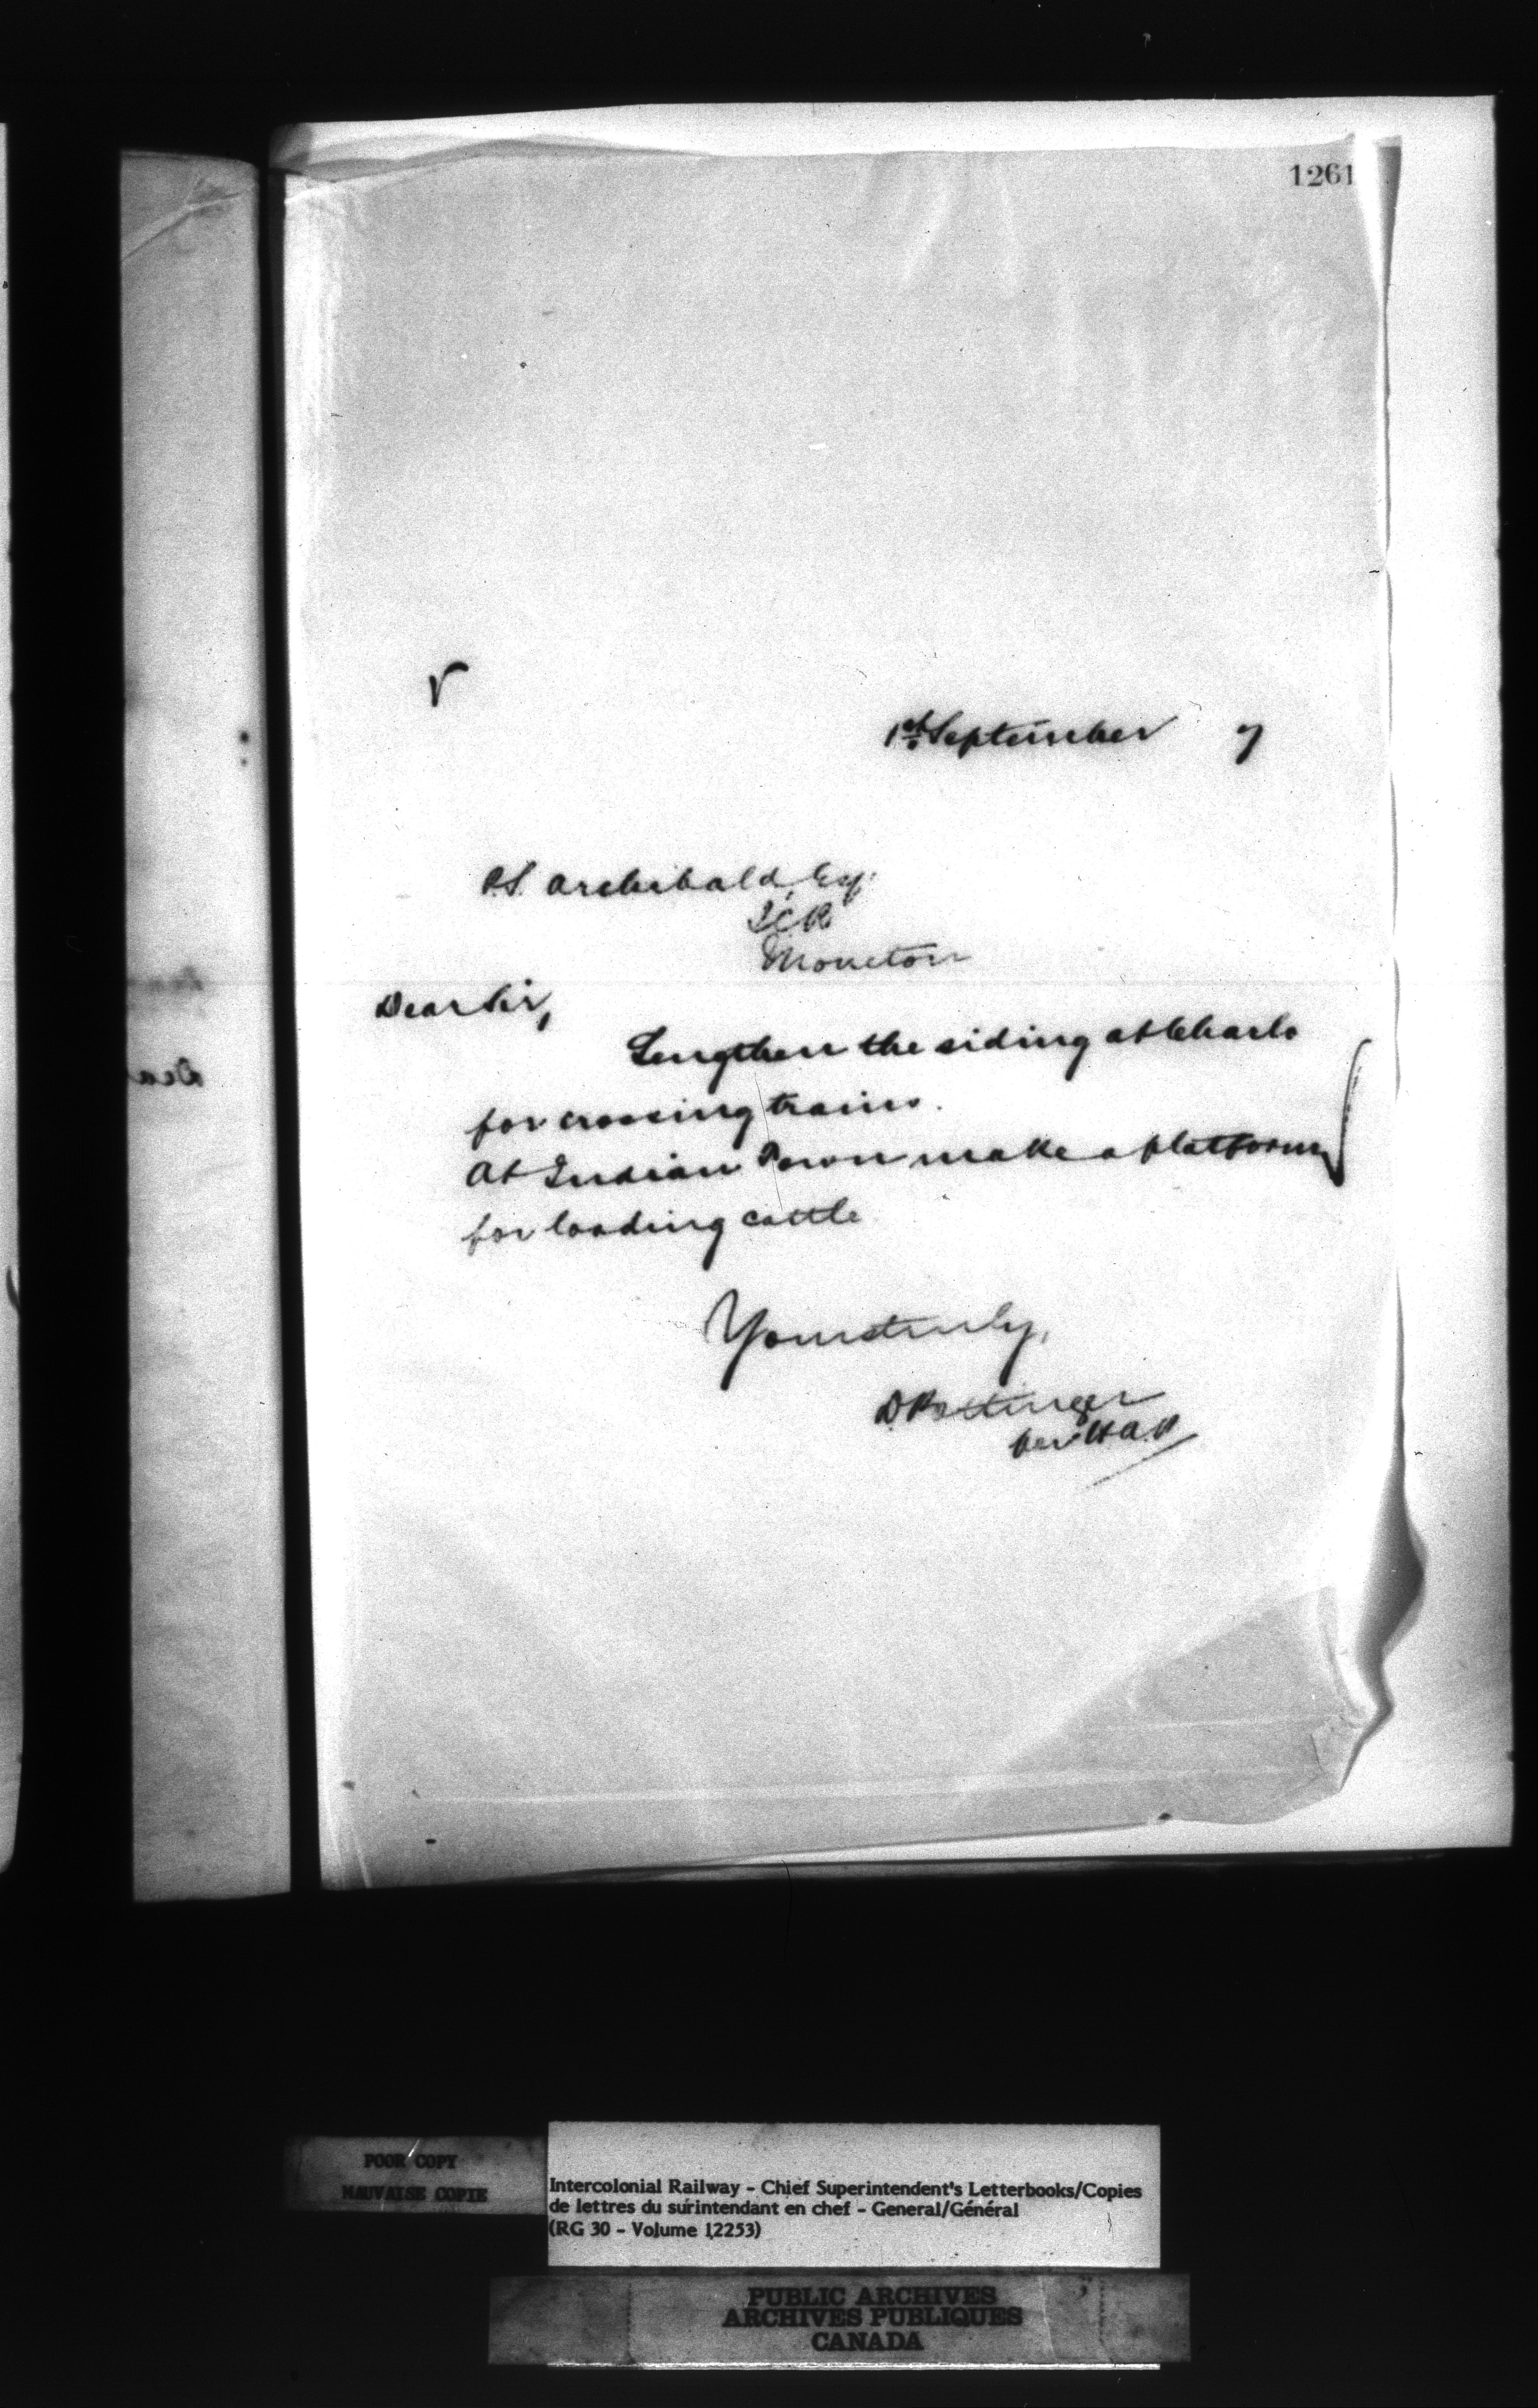 1261
1st September 7
P.S. Archibald, Esq.
I.C.R.
Moncton
Dear Sir,
Lengthen the siding at Charlo
for crossing trains.
At Indian Town make a platform
for loading cattle
Yours truly,
D. Pottinger
per H.A.P.
Dea
POOR COPY
MAUVAISE COPIE
Intercolonial Railway - Chief Superintendent's Letterbooks/Copies
de lettres du surintendant en chef - General/Général
(RG 30 - Volume 12253)
PUBLIC ARCHIVES
ARCHIVES PUBLIQUES
CANADA